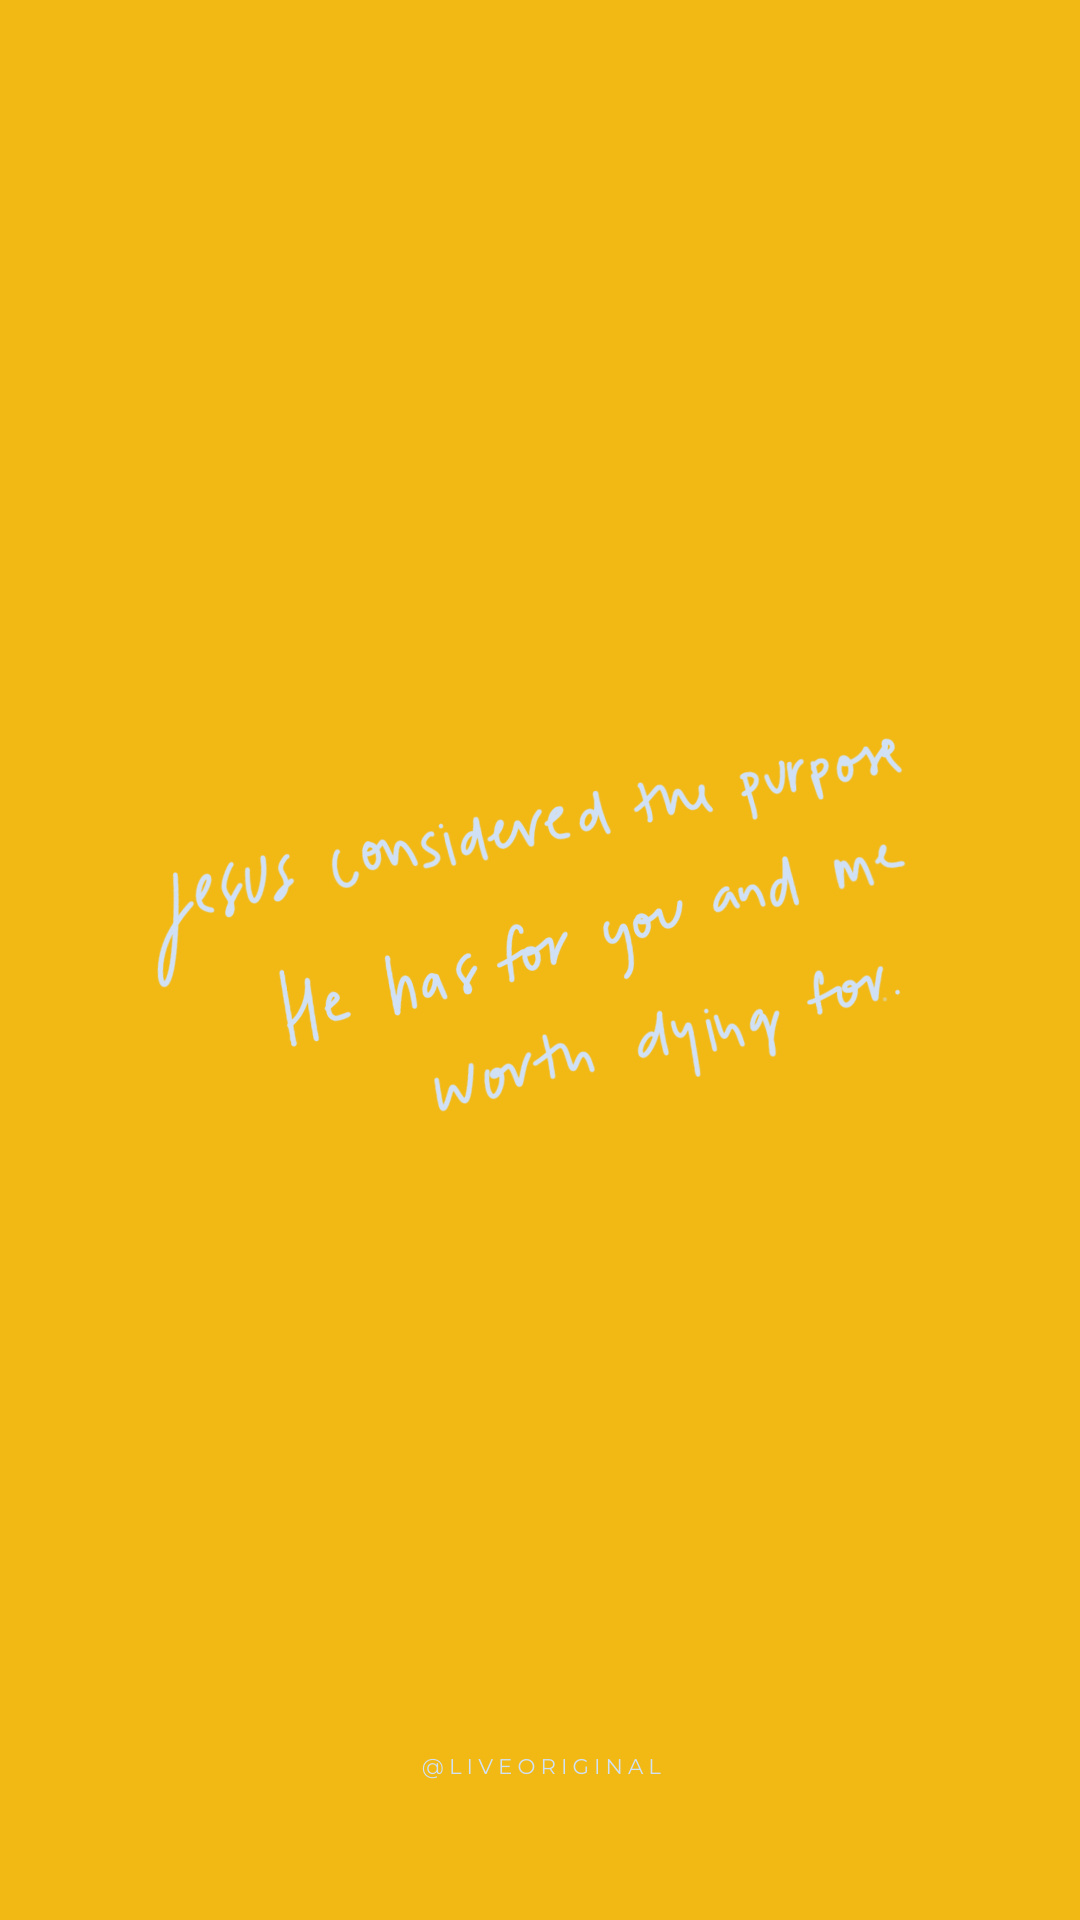 Jesus considered the purpose
He has for you and me
worth dying for.
@LIVEORIGINAL